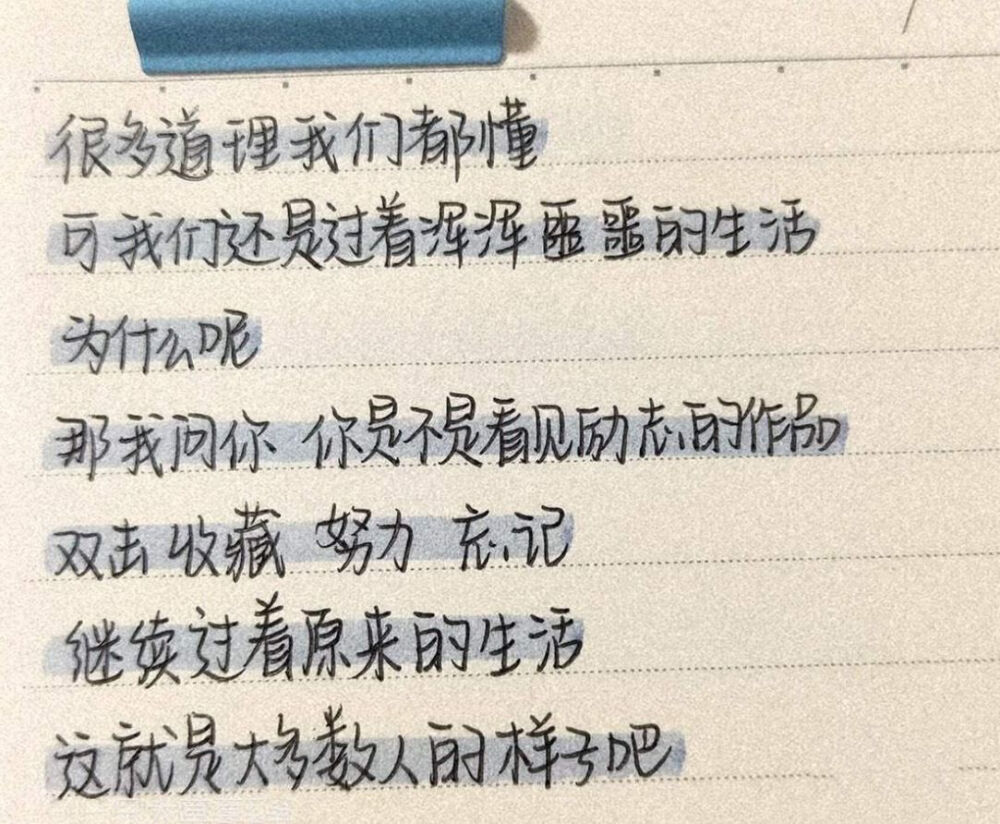 很多道理我们都懂
可我们还是过着浑浑噩噩的生活
为什么呢
那我问你 你是不是看见励志的作品
双击 收藏 努力 忘记
继续过着原来的生活
这就是大多数人的样子吧